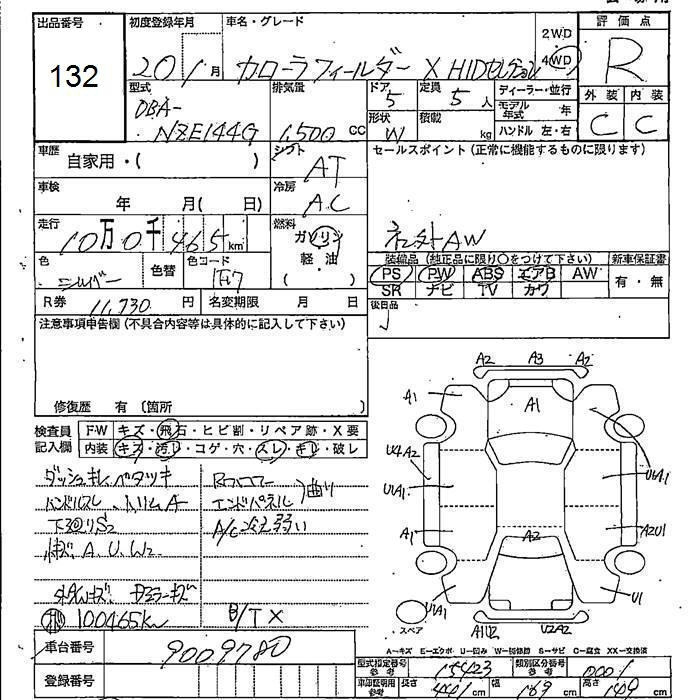 出品番号 初度登録年月 車名・グレード 2WD 4WD 評価点
132 20 1 月 カローラフィールダー X HIDセレクション R
型式 排気量 ドア 定員 ディーラー・並行 外装 内装
DBA-
NZE144G 1,500 CC 5 5 人 モデル年式 年 C C
形状 積載 W kg ハンドル 左・右
車歴 自家用・( ) シフト AT セールスポイント(正常に機能するものに限ります)
車検 年 月( 日) 冷房 AC
走行 10万0千465km 燃料 ガソリン 軽・油 ( ) 社外AW
色 シルバー 色替 色コード 1F7
装備品(純正品に限り○をつけて下さい) 新車保証書
PS PW ABS エアB AW 有・無
SR ナビ TV カワ
R券 11,730 円 名変期限 月 日 後日品
注意事項申告欄(不具合内容等は具体的に記入して下さい)
修復歴 有(箇所 )
検査員記入欄 FW キズ・飛石・ヒビ割・リペア跡・X要
内装 キズ・汚レ・コゲ・穴・スレ・キレ・破レ
ダッシュキレ、ベタツキ
ハンドルスレ、トリムA
下廻りS2
A、U、W2
100465km
Rフロアー
エンドパネル 曲り
A/C冷え弱い
B/T X
A2 A3 A2
A1 A1
U4A2
U1A1 U1A1
A1 A2 A2U1
U1A1 U1
スペア A1U2 U2A2
A-キズ E-エクボ U-凹み W-補修跡 S-サビ C-腐食 XX-交換済
車台番号 9009780
登録番号
型式指定番号 参考 15423 類別区分番号 参考 0001
車体証明用 参考 長さ cm 幅 169 cm 高さ cm